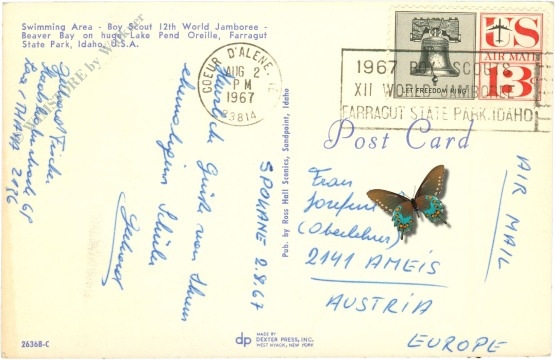 Swimming Area - Boy Scout 12th World Jamboree -
Beaver Bay on huge Lake Pend Oreille, Farragut
State Park, Idaho, U.S.A.
COEUR D'ALENE, ID
AUG 2
PM
1967
83814
LET FREEDOM RING
US
AIR MAIL
13
1967 BOY SCOUTS
XII WORLD JAMBOREE
FARRAGUT STATE PARK, IDAHO
Post Card
Herzlich Grüße von Ihrem
ehemaligen Schüler
Gebhard
SPOKANE 2.8.67
Pub. by Ross Hall Scenics, Sandpoint, Idaho
Frau
(Oberlehrer)
2141 AMEIS
AUSTRIA
EUROPE
AIR MAIL
26368-C
dp
MADE BY
DEXTER PRESS, INC.
WEST NYACK, NEW YORK